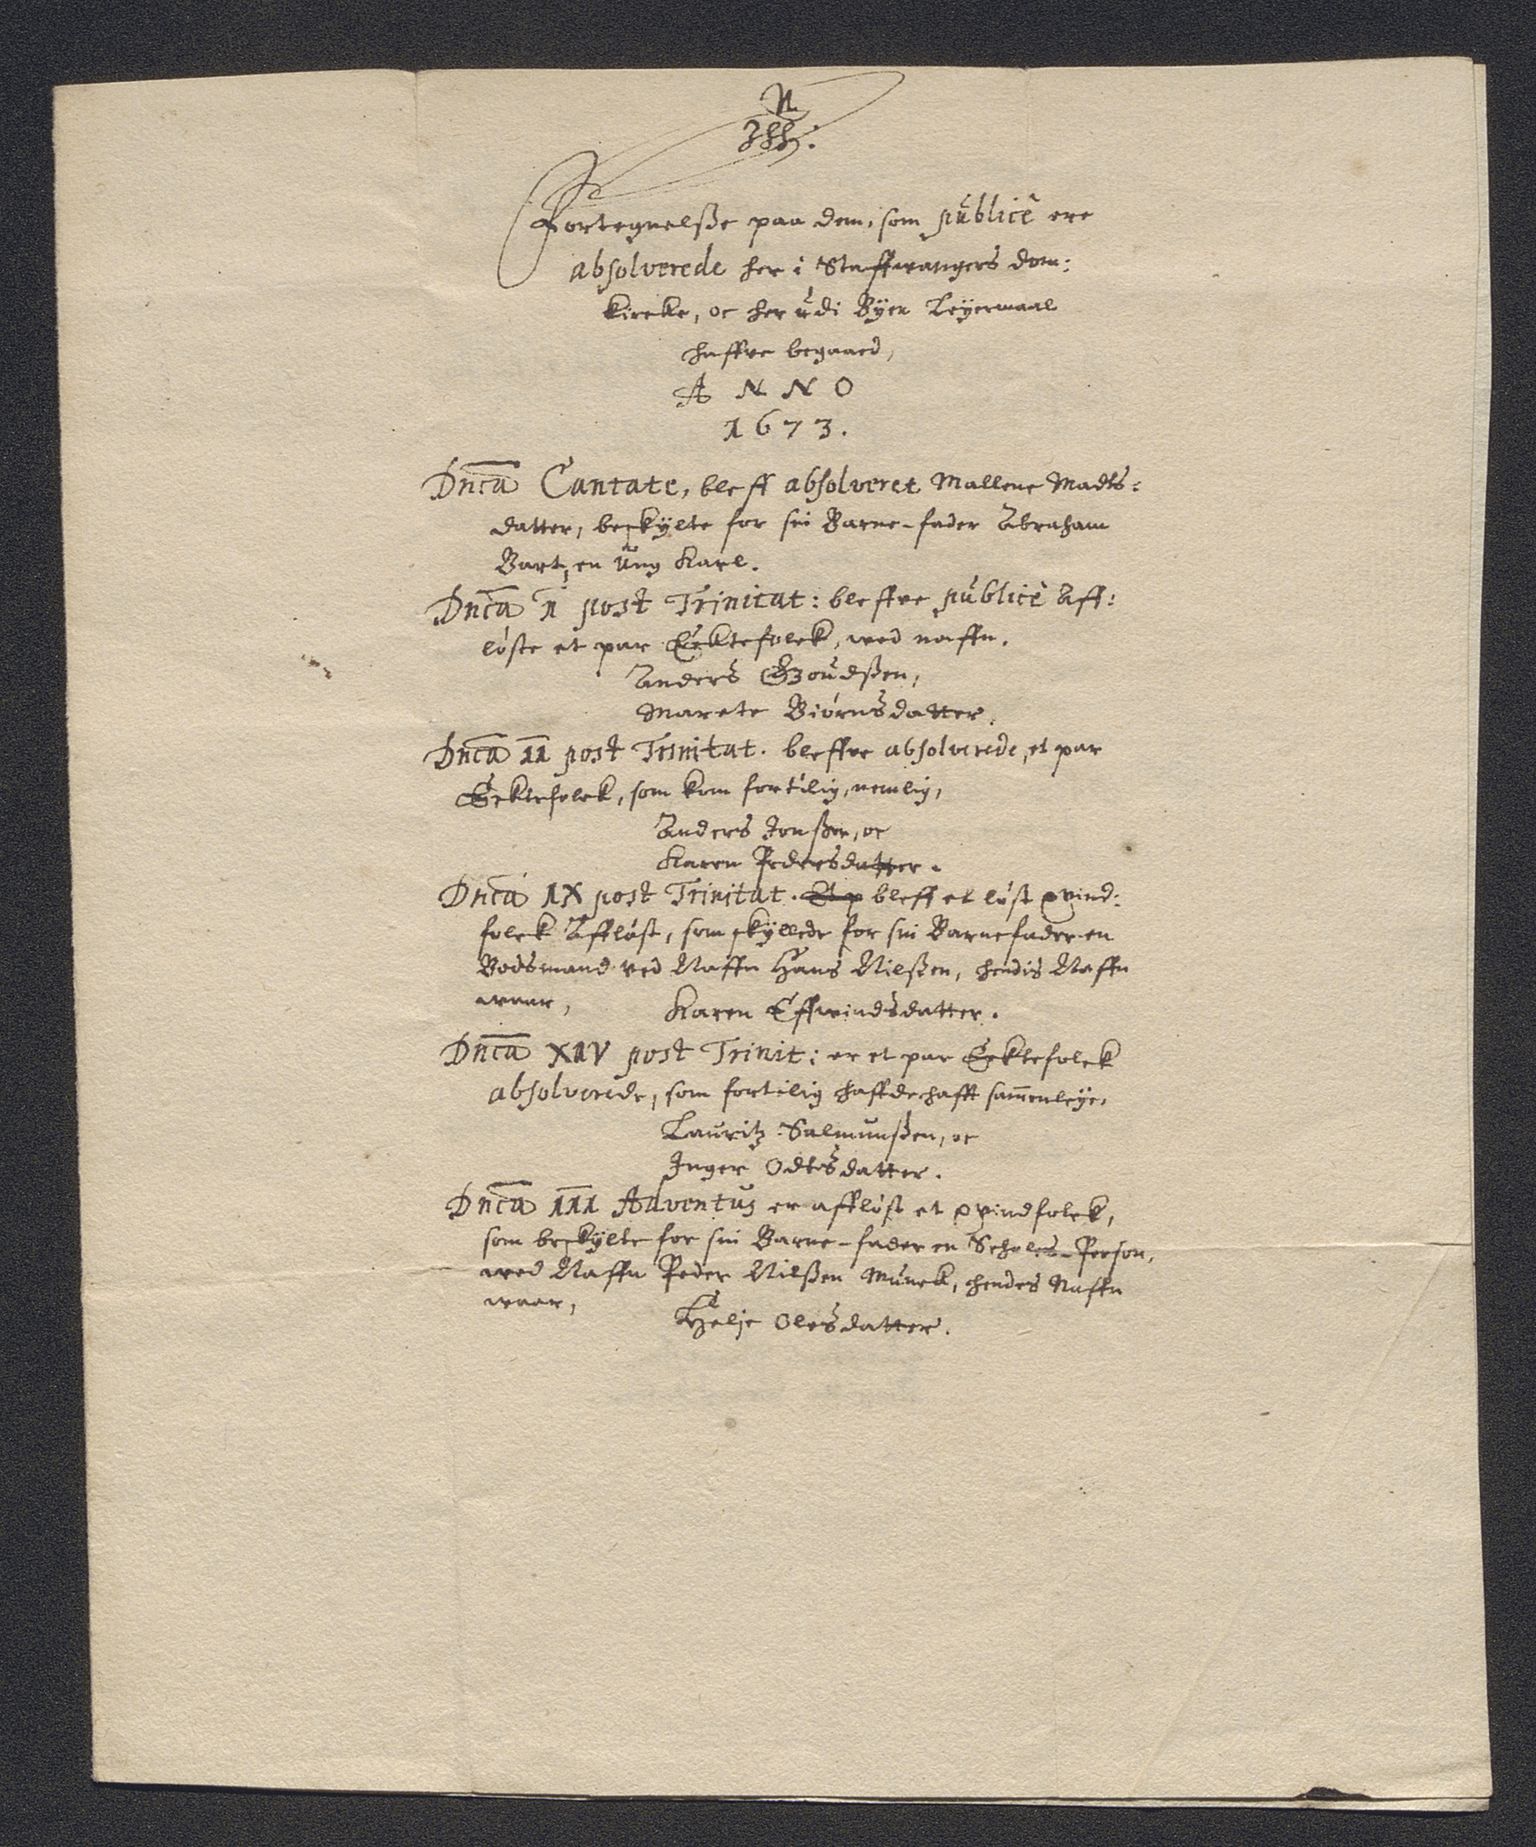 Fortegnelsse paa dem, som publicè ere
absolverede her i Staffwangers dom:
kircke, oc her udi Byen Leyermaal
haffve begaaed,
A N N O
1673.
Dnica Cantate, bleff absolveret Mallene Madts:
datter, beskylte for sin Barne-fader Abraham
Bart, en Ung Karl.
Dnica I post Trinitat: bleffve publicè Aff:
løste et par Ecktefolck, wed naffn.
Anders Goudssen,
Marete Biørnsdatter.
Dnica II post Trinitat. bleffve absolverede, et par
Ecktefolck, som kom fortilig, nemlig,
Anders Jonssen, oc
Karen Pedersdatter.
Dnica IX post Trinitat. Et p bleff et løst qvind:
folck Affløst, som skyllede for sin Barnefader en
Bodsmand ved Naffn Hans Nilssen, hendis Naffn
waar,
Karen Effwindsdatter.
Dnica XIV post Trinit: er et par Ecktefolck
absolverede, som fortilig haffde hafft sammenleye,
Lauritz Salmunssen, oc
Inger Odtsdatter.
Dnica III Adventus er affløst et qvindfolck,
som beskylte for sin Barne-fader en Scholes-Person,
wed Naffn Peder Nilssen Munck, hendes Naffn
waar,
Helje Olesdatter.